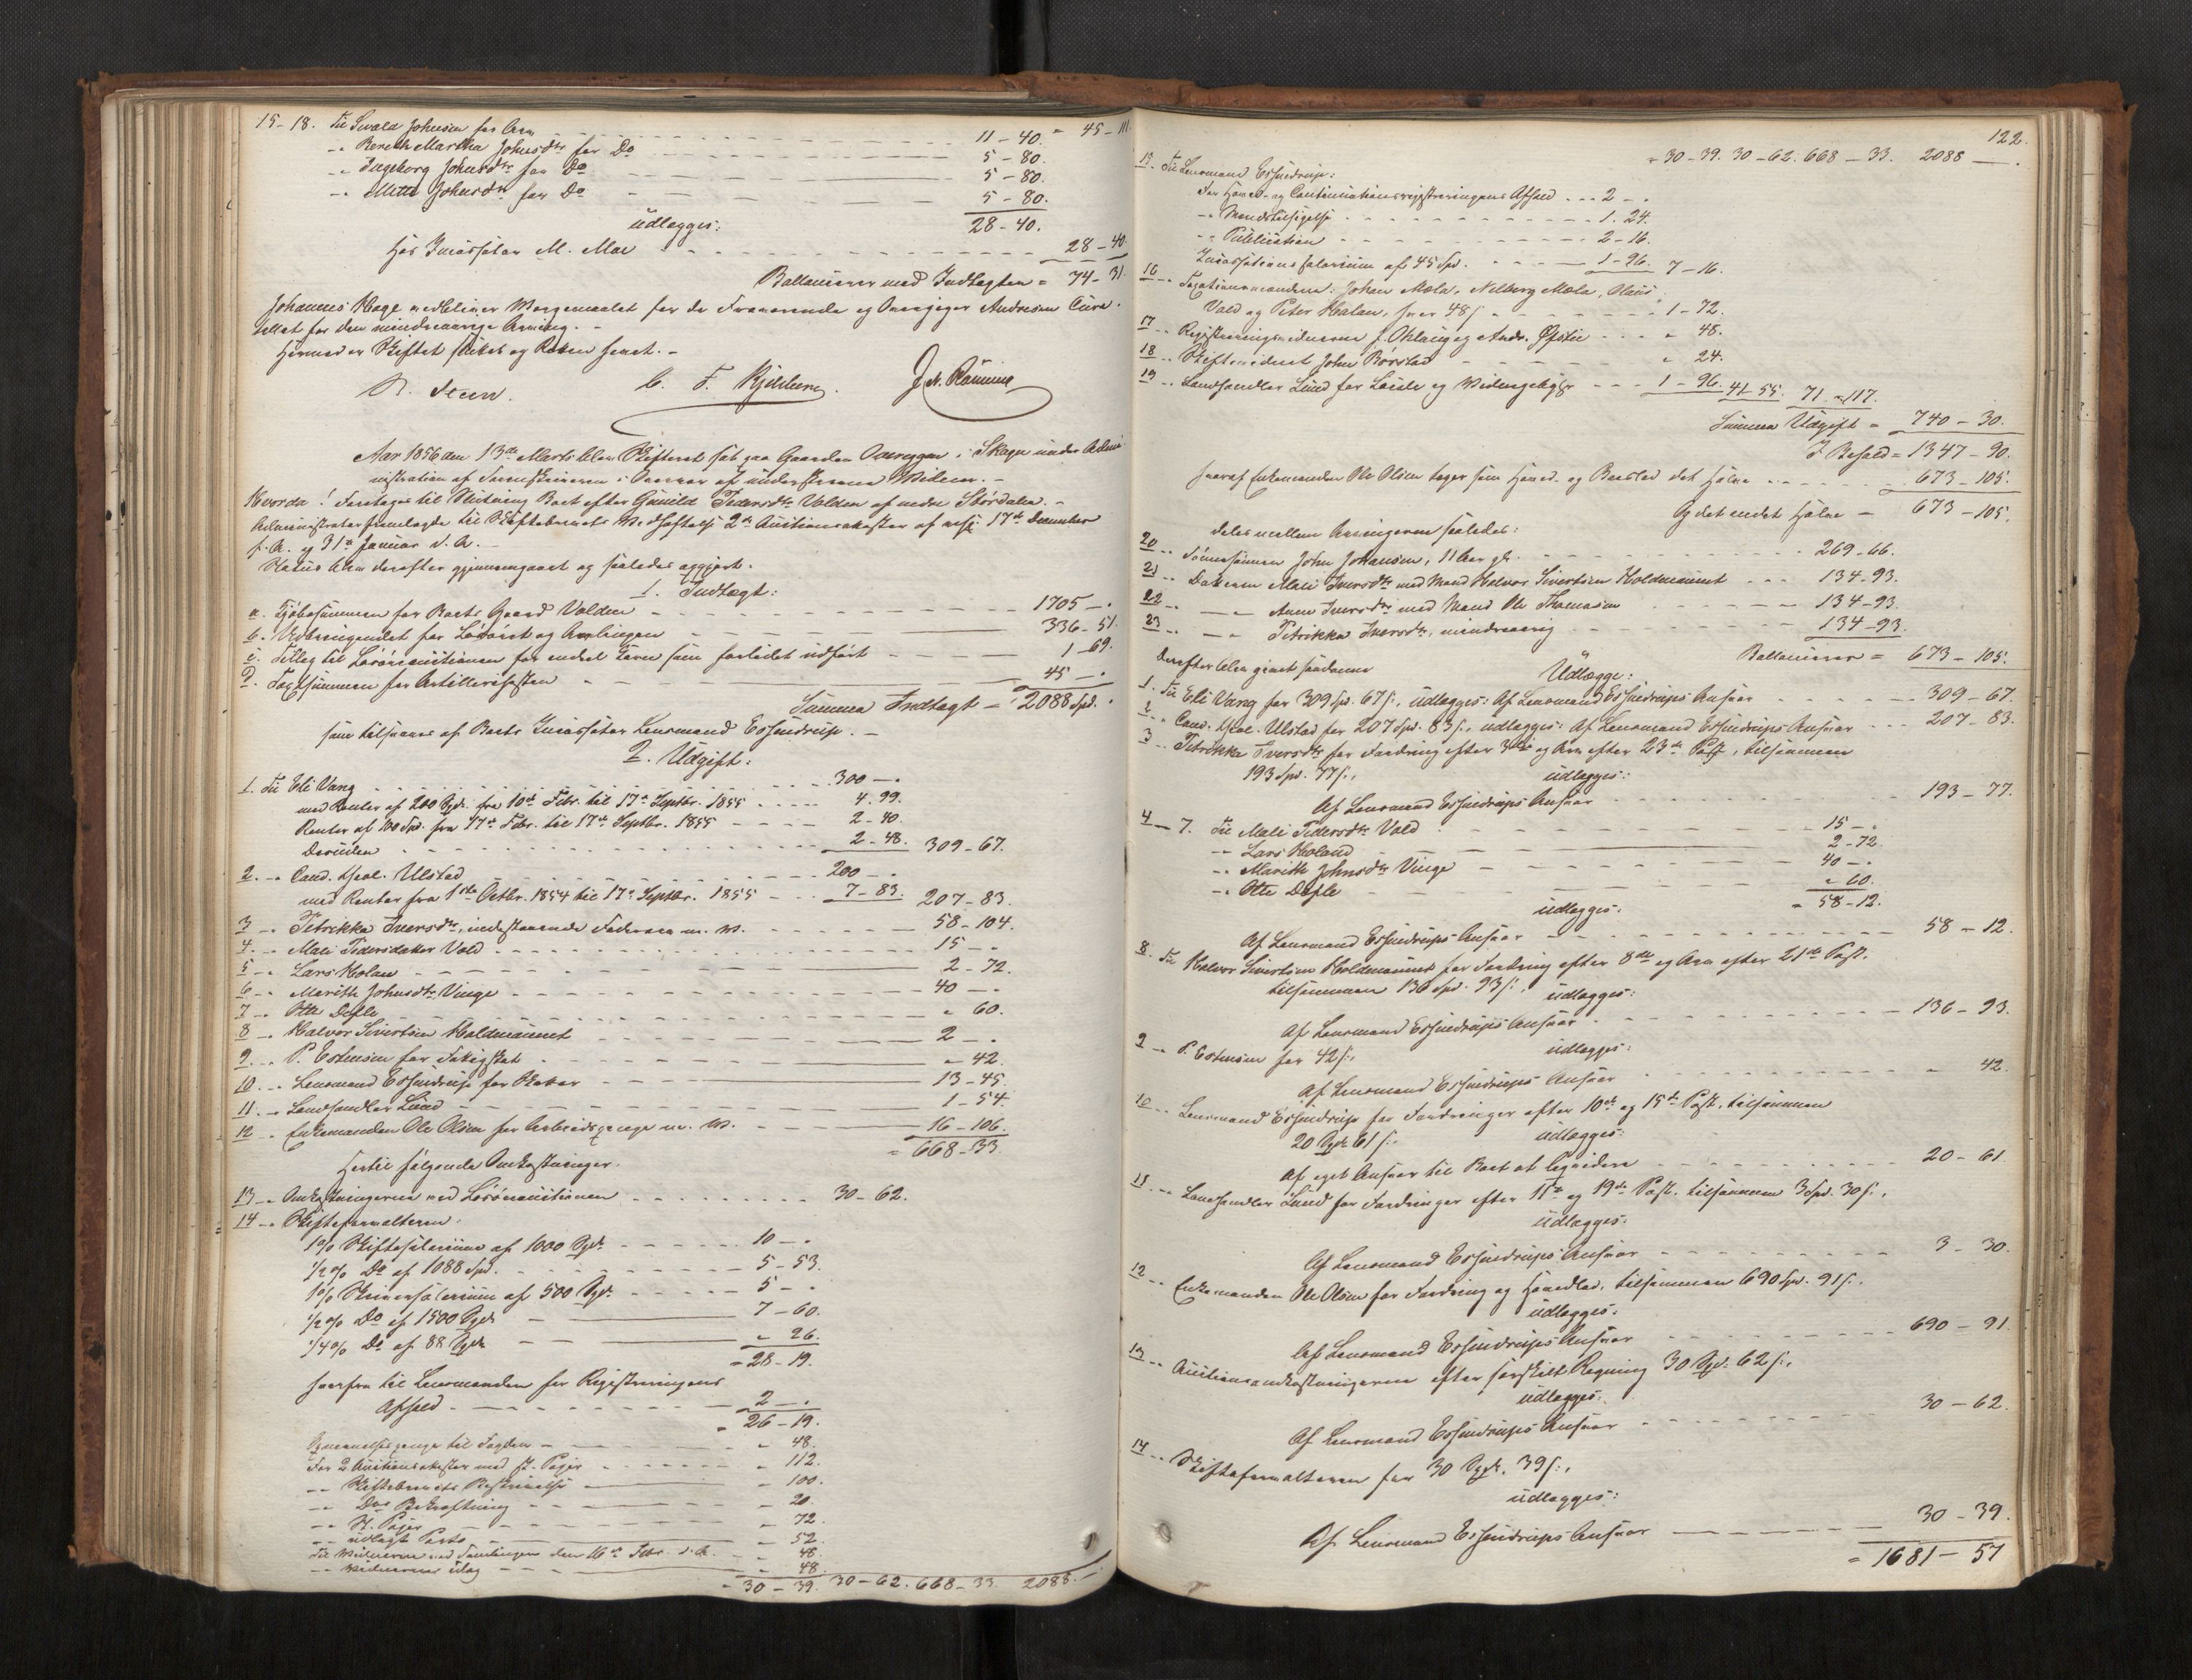 15-18. Til Sivald Johnsen for Arv - - - 11-40. " 45-111.
-" Bereth Martha Johnsdtr for Do - - - 5-80.
-" Ingeborg Johnsdtr for Do - - - 5-80.
-" Mette Johnsdtr for Do - - - 5-80.
28-40.
udlægges:
Hos Incassator M. Moe - - - 28-40.
Ballancerer med Indtægten = 74-31.
Johannes Hage vedbliver Værgemaalet for de Fraværende og Andresen Cura-
tellet for den mindreaarige Arving. -
Hermed er Skiftet sluttet og Retten hævet. -
N. Steen. C. F. Kjeldsberg.
Aar 1856 den 13de Marts blev Skifteret sat paa Gaarden i Skogn under Admi-
nistration af Sorenskriveren i Overvær af underskrevne Vidner. -
Hvorda! Foretoges til Slutning Boet efter Gunild Pedersdtr Valden af nedre Størdalen. -
Administrator fremlagde til Skiftebrevets Vedhæftelse 2de Auctionsakster af resp. 17de December
f. A. og 31te Januar d. A. -
Status blev derefter gjennemgaaet og saaledes opgjort.
1. Indtægt:
a. Kjøbesummen for Boets Gaard Valden - - - 1705 - ".
b. Udbringendet for Løsøret og Avlingen - - - 336-51.
c. Tillæg til Løsøreauctionen for - - - 1-69.
d. Taxtsummen for Artillerihesten - - - 45 - ".
Summa Indtægt = 2088 Spd. ".
som tilsvares af Boets Incassator Lensmand Essendrup. -
2. Udgift:
1. Til Eli Vang - - - 300 - ".
med Renter af 200 Spd. fra 10de Febr. til 17de Septbr. 1855 - - - 4-99.
Renter af 100 Spd. fra 17de Febr. til 17de Septbr. 1855 - - - 2-40.
Desuden - - - 2-48. 309-67.
2. -" Cand. theol. Ulstad - - - 200 - ".
med Renter fra 1ste Octbr. 1854 til 17de Septbr. 1855 - - - 7-83. 207-83.
3 -" Petrikka Iversdtr, indestaaende Fædrearv m. V. - - - 58-104.
4. -" Mali Pedersdatter Vold - - - 15 - ".
5 -" Lars Holan - - - 2-72.
6 -" Marith Johnsdtr Vinge - - - 40 - ".
7 -" Otte - - - " 60.
8 -" Halvor Sivertsen Holdmaunet - - - 2 - ".
9. -" P. Estensen for - - - " - 42.
10. -" Lensmand Essendrup for Skatter - - - 13-45.
11. -" Landhandler Lund - - - 1-54.
12 -" Enkemanden Ole Olsen for Arbeidspenge m. V. - - - 16-106.
= 668-33.
Hertil følgende Omkostninger:
13 -" Omkostningerne ved Løsøreauctionen - - - 30-62.
14 -" Skifteforvalteren:
1% Skiftesalarium af 1000 Spd. - - - 10 - ".
1/2% Do af 1088 Spd. - - - 5-53.
1% Skriversalarium af 500 Spd. - - - 5 - ".
1/2% Do af 1500 Spd. - - - 7-60.
1/4% Do af 88 Spd. - - - " 26.
= 28-19.
herfra til Lensmanden for Registreringens
Afhold - - - 2 - ".
= 26-19.
Opnævnelsespenge til Fogden - - - " 48.
For 2 Auctionsakster med st. Papir - - - " 112.
-" Skiftebrevets Beskrivelse - - - " 100.
-" Dets Bekræftning - - - " 20.
-" St. Papir - - - " 72.
-" udlagt Porto - - - " 52.
Til Vidnerne ved Samlingen den 16de Febr. d. A. - - - " 48.
-" Vidnerne idag - - - " 48.
= 30-39. 30-62. 668-33. 2088. -
122.
= 30-39. 30-62. 668-33. 2088 - .
15. -" Til Lensmand Essendrup:
For Hoved- og Continuationsregistreringens Afhold - - - 2 - ".
-" Mændstilsigelse - - - 1. 24.
-" Publication - - - 2-16.
Incassationssalarium af 45 Spd. - - - 1-96. 7-16.
16 -" Taxationsmændene: Johan Mæla, Nelberg Mæla, Olaus
Vold og Peter Hølan, hver 48 s. - - - 1-72.
17 -" Registreringsvidnerne J. Øhlaug og Andr. Øfstie - - - " 48.
18 -" Skiftevidnet John Børstad - - - " 24.
19 -" Landhandler Lund for Leie og - - - 1-96. 41-55. 71-117.
Summa Udgift = 740-30.
I Behold = 1347-90.
hvoraf Enkemanden Ole Olsen tager som Hoved- og Boeslod det Halve - - - 673-105.
Og det andet Halve = 673-105.
deles mellem Arvingerne saaledes:
20 -" Sønnesønnen John Johansen, 11 Aar gl. - - - 269-66.
21 -" Datteren Mali Iversdtr med Mand Halvor Sivertsen Holdmaunet - - - 134-93.
22 -" -" Anne Iversdtr med Mand Ole Thomasen - - - 134-93.
23 -" -" Petrikka Iversdtr, mindreaarig - - - 134-93.
Ballancerer = 673-105.
Derefter blev gjort saadanne
Udlægge:
1. Til Eli Vang for 309 Spd. 67 s., udlægges: Af Lensmand Essendrups Ansvar - - - 309-67.
2. -" Cand. theol. Ulstad for 207 Spd. 83 s., udlægges: Af Lensmand Essendrups Ansvar - - - 207-83.
3 -" Petrikka Iversdtr for Fordring efter 3die og Arv efter 23de Post, tilsammen
193 Spd. 77 s., udlægges:
Af Lensmand Essendrups Ansvar - - - 193-77.
4-7. Til Mali Pedersdtr Vold - - - 15 - ".
-" Lars Holand - - - 2-72.
-" Marith Johnsdtr Vinge - - - 40 - ".
-" Otte - - - " 60.
= 58-12.
udlægges:
Af Lensmand Essendrups Ansvar - - - 58-12.
8. Til Halvor Sivertsen Holdmaunet for Fordring efter 8de og Arv efter 21de Post,
tilsammen 136 Spd. 93 s., udlægges:
Af Lensmand Essendrups Ansvar - - - 136-93.
9 -" P. Estensen for 42 s., udlægges:
Af Lensmand Essendrups Ansvar - - - " 42.
10 -" Lensmand Essendrup for Fordringer efter 10de og 15de Post, tilsammen
20 Spd. 61 s., udlægges:
Af eget Ansvar til Boet at liqvidere - - - 20-61.
11. -" Landhandler Lund for Fordringer efter 11te og 19de Post, tilsammen 3 Spd. 30 s.,
udlægges:
Af Lensmand Essendrups Ansvar - - - 3-30.
12 -" Enkemanden Ole Olsen for Fordring og Hovedlod, tilsammen 690 Spd. 91 s.,
udlægges:
Af Lensmand Essendrups Ansvar - - - 690-91.
13 -" Auctionsomkostningerne efter særskilt Regning 30 Spd. 62 s.,
udlægges:
Af Lensmand Essendrups Ansvar - - - 30-62.
14 -" Skifteforvalteren for 30 Spd. 39 s.,
udlægges:
Af Lensmand Essendrups Ansvar - - - 30-39.
= 1681-57